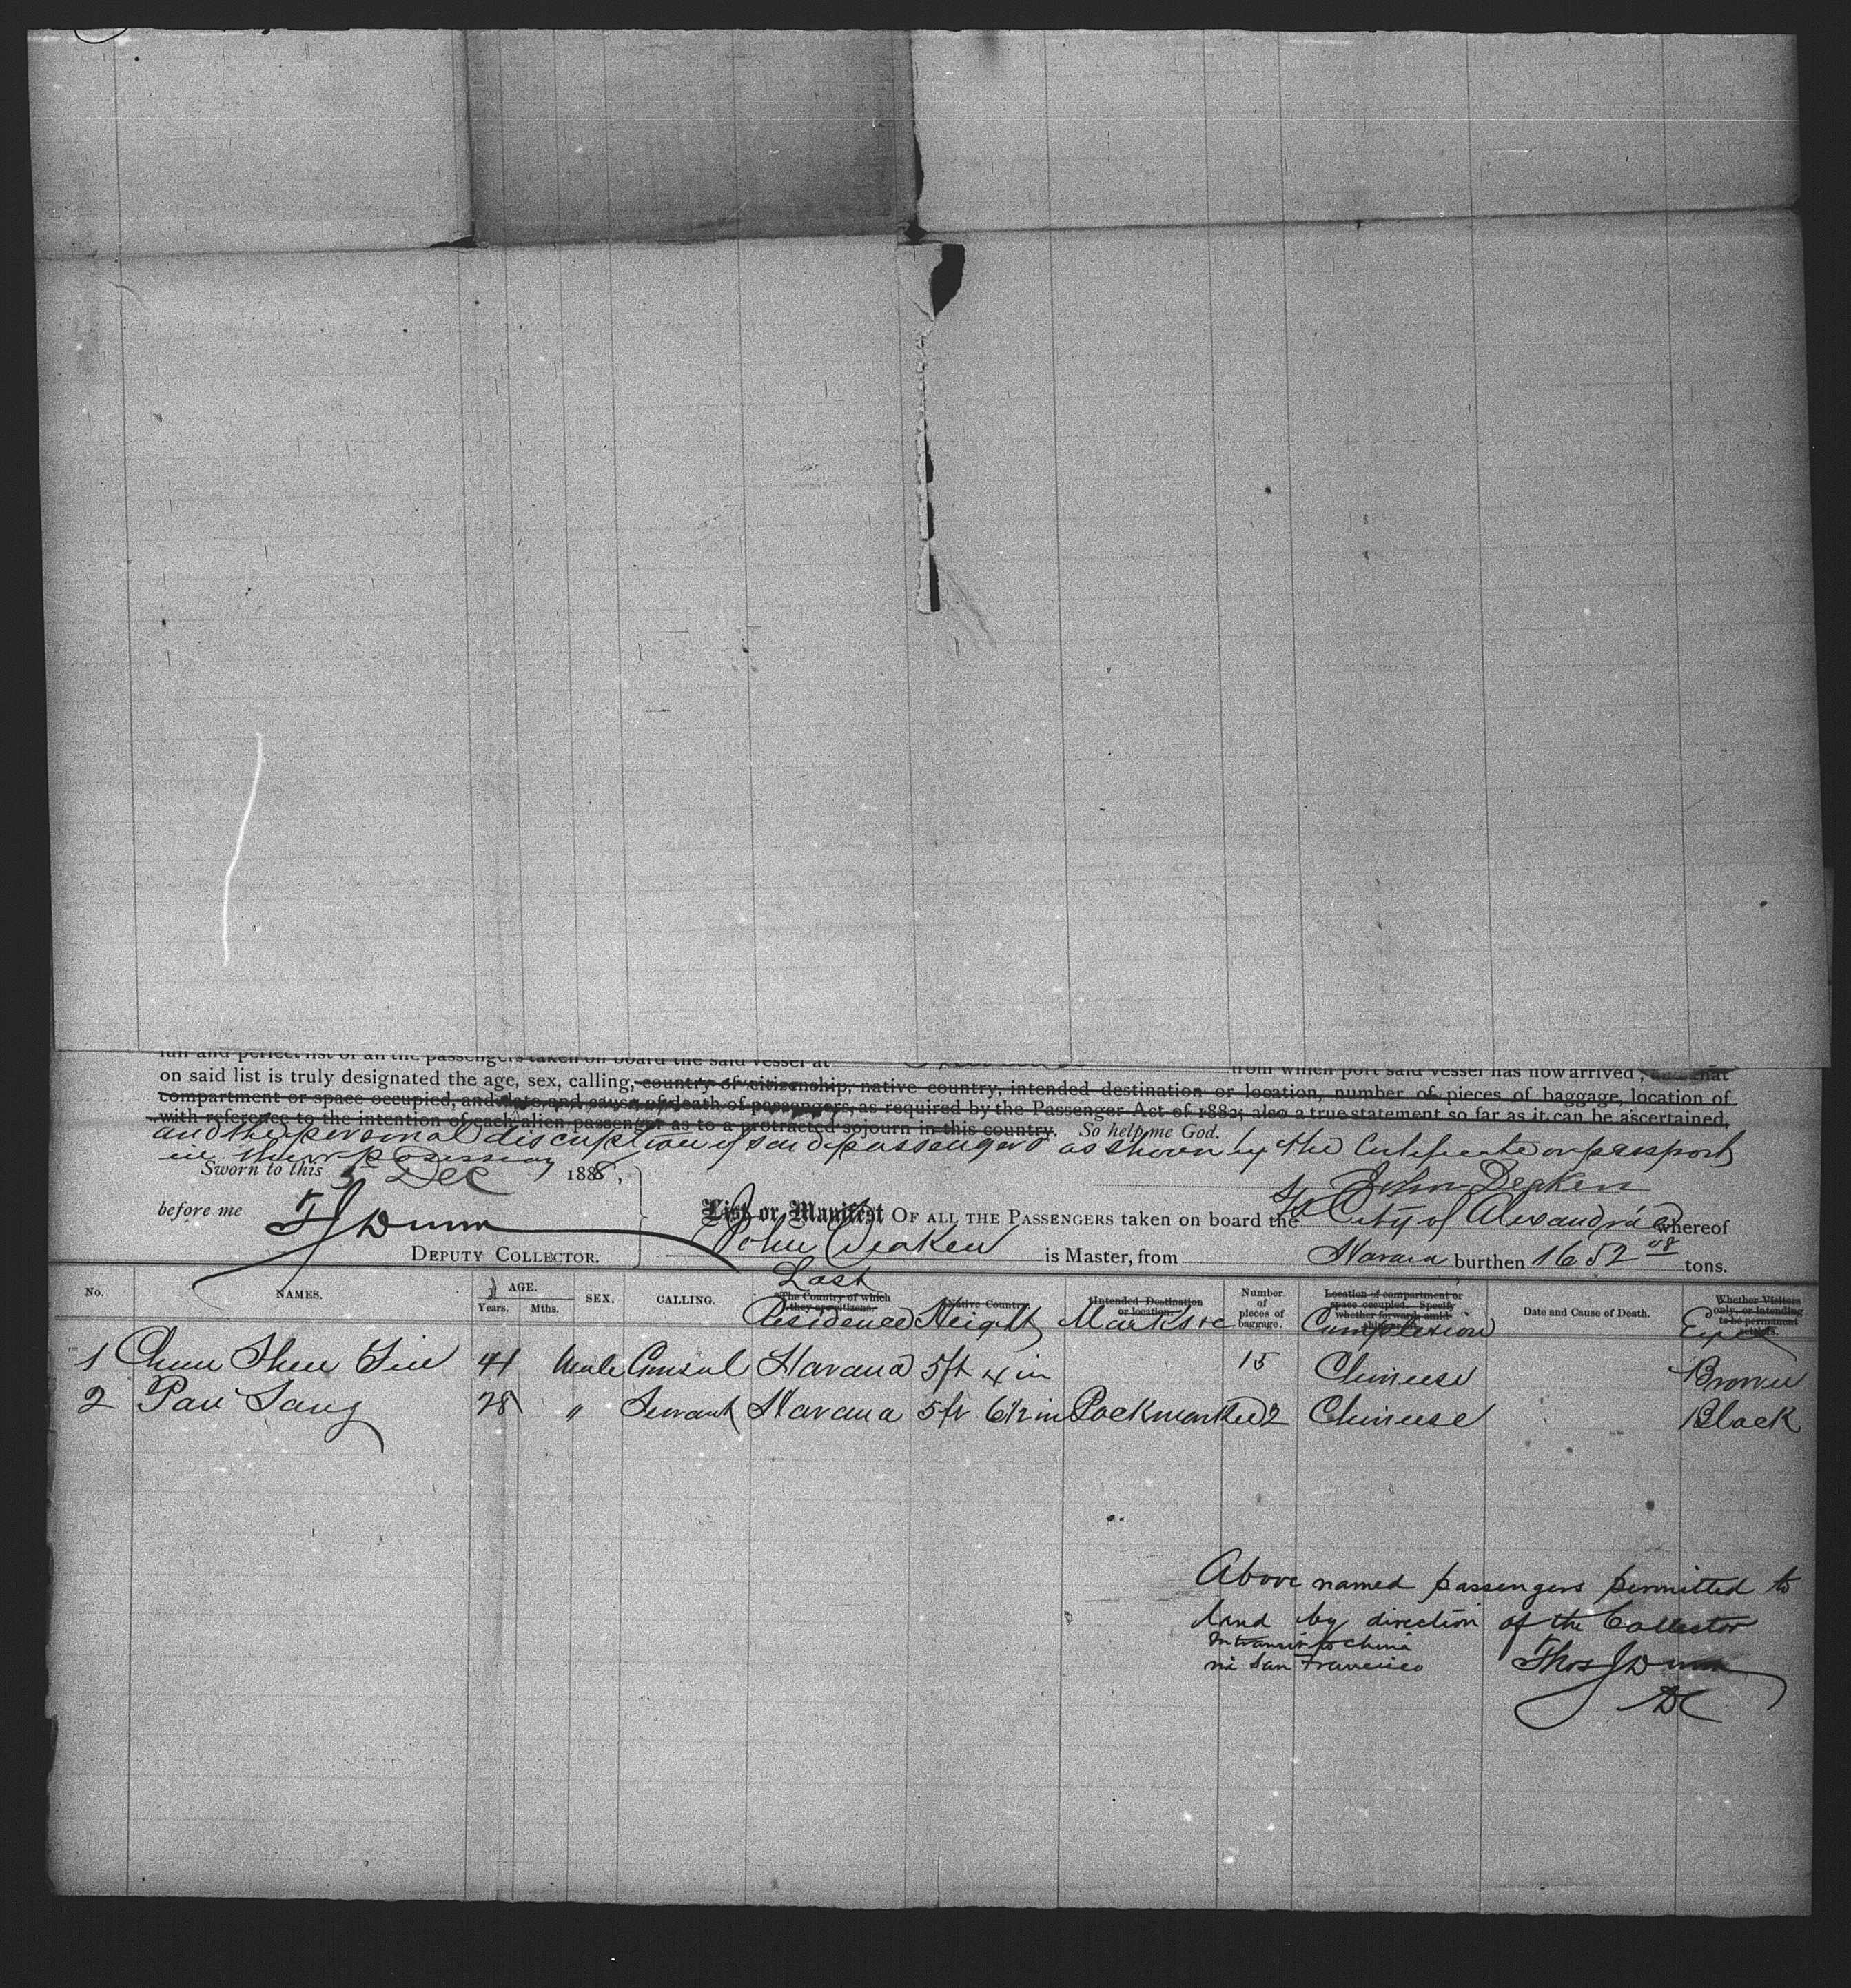 full and perfect list of all the passengers taken on board the said vessel at from which port said vessel has now arrived; and that
on said list is truly designated the age, sex, calling, country of citizenship, native country, intended destination or location, number of pieces of baggage, location of
compartment or space occupied, and date and cause of death of passengers, as required by the Passenger Act of 1882; also a true statement so far as it can be ascertained,
with reference to the intention of each alien passenger as to a protracted sojourn in this country. So help me God.
and the personal discription of said passengers as shown by the Certificate or passport
in their possession
Sworn to this 5 Dec 1888,
John Deaken
before me T J Dunn
DEPUTY COLLECTOR.
List or Manifest OF ALL THE PASSENGERS taken on board the SS City of Alexandria whereof
John Deaken is Master, from Havana burthen 1652 08 tons.
No. NAMES. AGE. Years. Mths. SEX. CALLING. The Country of which they are citizens. Last Residence Native Country Height Intended Destination or location. Marks &c Number of pieces of baggage. Location of compartment or space occupied. Specify whether forward, amidships or aft. Complexion Date and Cause of Death. Whether Visitors only, or intending to be permanent settlers. Eyes
1 Chun Shen Yin 41 Male Consul Havana 5 ft 4 in 15 Chinese Brown
2 Pau Sang 28 " Servant Havana 5 ft 6 1/2 in Pockmarked 2 Chinese Black
Above named passengers permitted to
land by direction of the Collector
In transit to China
via San Francisco
Thos J Dunn
DC